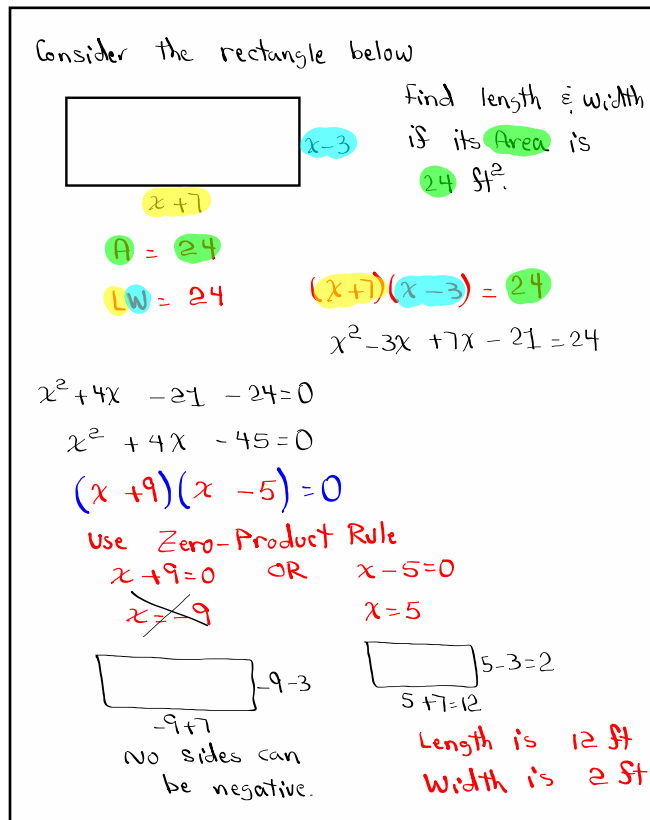 Consider the rectangle below
Find length & width
if its Area is
24 ft².
x-3
x+7
A = 24
LW = 24
(x+7)(x-3) = 24
x²-3x +7x - 21 = 24
x² +4x -21 -24=0
x² +4x -45=0
(x +9)(x -5)=0
Use Zero-Product Rule
x+9=0 OR x-5=0
x=-9 x=5
-9-3
-9+7
5-3=2
5+7=12
No sides can
be negative.
Length is 12 ft
Width is 2 ft